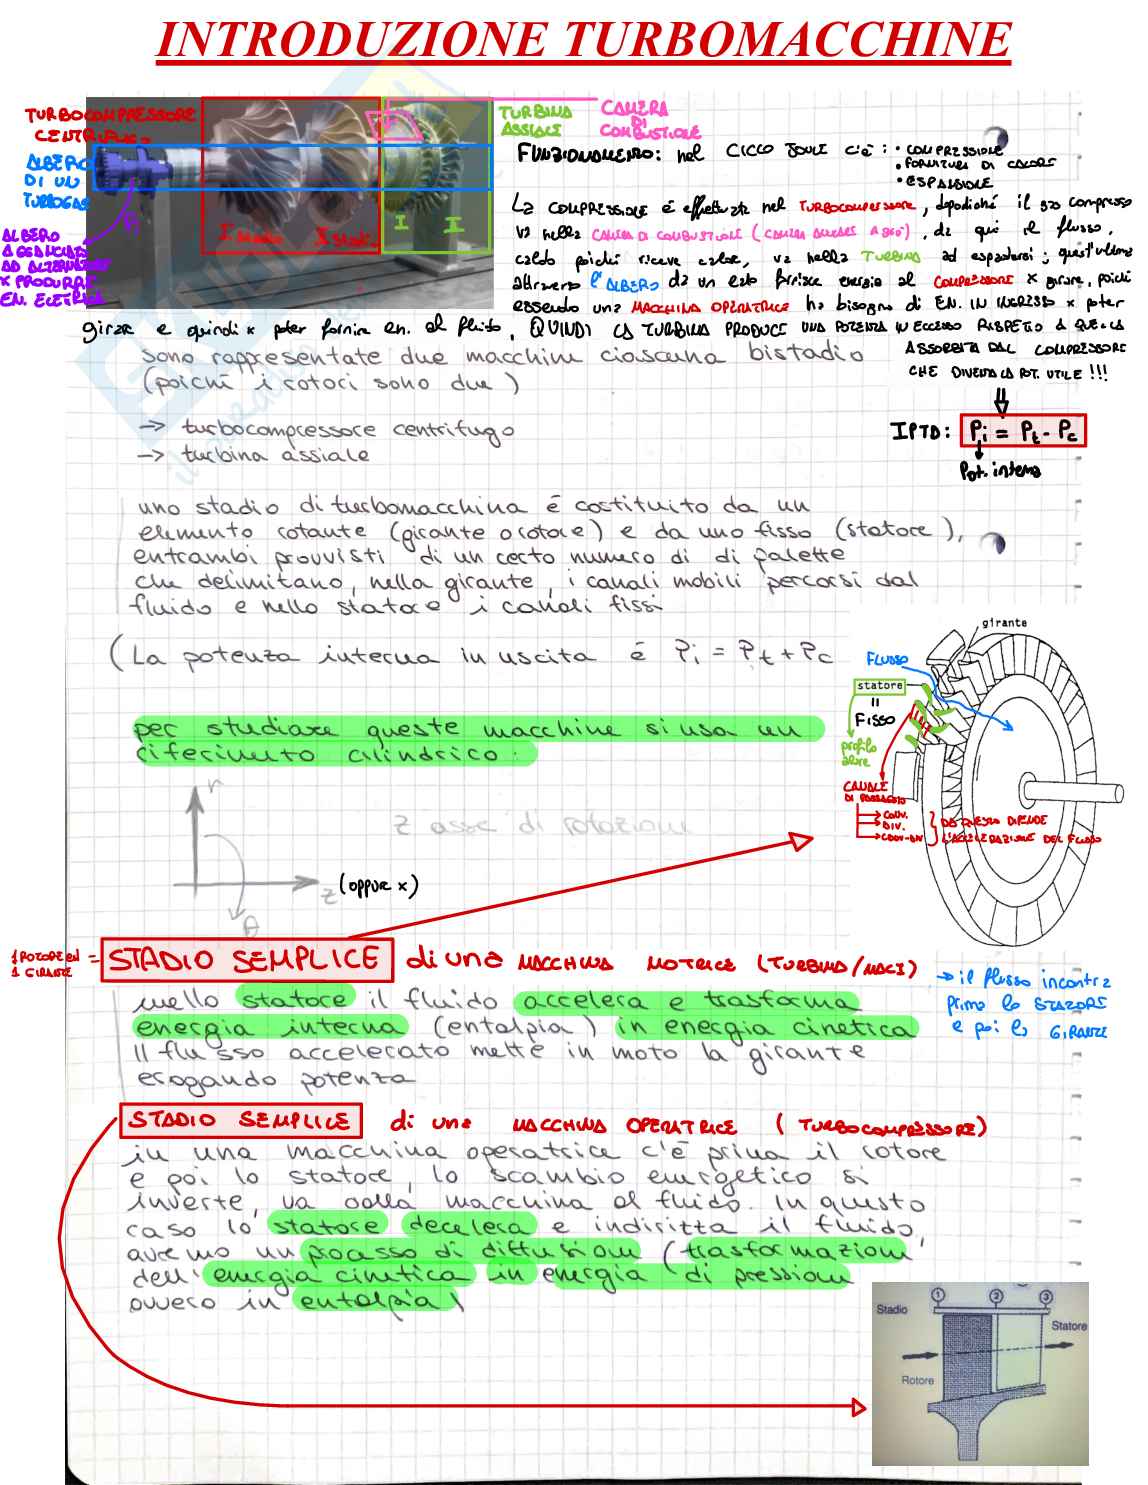 INTRODUZIONE TURBOMACCHINE
TURBOCOMPRESSORE
CENTRIFUGO
ALBERO
DI UN
TURBOGAS
ALBERO
AGGANCIATO
AD ALTERNATORE
X PRODURRE
EN. ELETTRICA
I stadio
II stadio
I
II
TURBINA
ASSIALE
CAMERA
DI
COMBUSTIONE
FUNZIONAMENTO: nel CICLO JOULE c'è: • COMPRESSIONE
• FORNITURA DI CALORE
• ESPANSIONE
La COMPRESSIONE è effettuata nel TURBOCOMPRESSORE, dopodiché il gas compresso
va nella CAMERA DI COMBUSTIONE (CAMERA ANULARE A GAS), da qui il flusso,
caldo poiché riceve calore, va nella TURBINA ad espandersi; quest'ultima
attraverso l'ALBERO da un lato fornisce energia al COMPRESSORE x girare, poiché
essendo una MACCHINA OPERATRICE ha bisogno di EN. IN INGRESSO x poter
girare e quindi x poter fornire en. al fluido, QUINDI LA TURBINA PRODUCE UNA POTENZA IN ECCESSO RISPETTO A QUELLA
ASSORBITA DAL COMPRESSORE
CHE DIVENTA LA POT. UTILE!!!
sono rappresentate due macchine ciascuna bistadio
(poiché i rotori sono due)
→ turbocompressore centrifugo
→ turbina assiale
IPTD: Pi = Pt - Pc
Pot. interna
uno stadio di turbomacchina è costituito da un
elemento rotante (girante o rotore) e da uno fisso (statore),
entrambi provvisti di un certo numero di di palette
che delimitano, nella girante, i canali mobili percorsi dal
fluido e nello statore i canali fissi
(La potenza interna in uscita è Pi = Pt + Pc
girante
FLUSSO
statore
=
FISSO
profilo
alare
CANALE
DI PASSAGGIO
→ CONV.
→ DIV.
→ CONV-DIV
DA QUESTO DIPENDE
L'ACCELERAZIONE DEL FLUSSO
per studiare queste macchine si usa un
riferimento cilindrico:
r
z asse di rotazione
z (oppure x)
θ
1 ROTORE ed
1 GIRANTE
= STADIO SEMPLICE di una MACCHINA MOTRICE (TURBINA/MACI)
→ il flusso incontra
prima lo STATORE
e poi la GIRANTE
nello statore il fluido accelera e trasforma
energia interna (entalpia) in energia cinetica
Il flusso accelerato mette in moto la girante
erogando potenza
STADIO SEMPLICE di una MACCHINA OPERATRICE (TURBOCOMPRESSORE)
in una macchina operatrice c'è prima il rotore
e poi lo statore, lo scambio energetico si
inverte, va dalla macchina al fluido. In questo
caso lo statore decelera e indirizza il fluido,
avremo un processo di diffusione (trasformazione
dell'energia cinetica in energia di pressione
ovvero in entalpia)
1 2 3
Stadio
Statore
Rotore